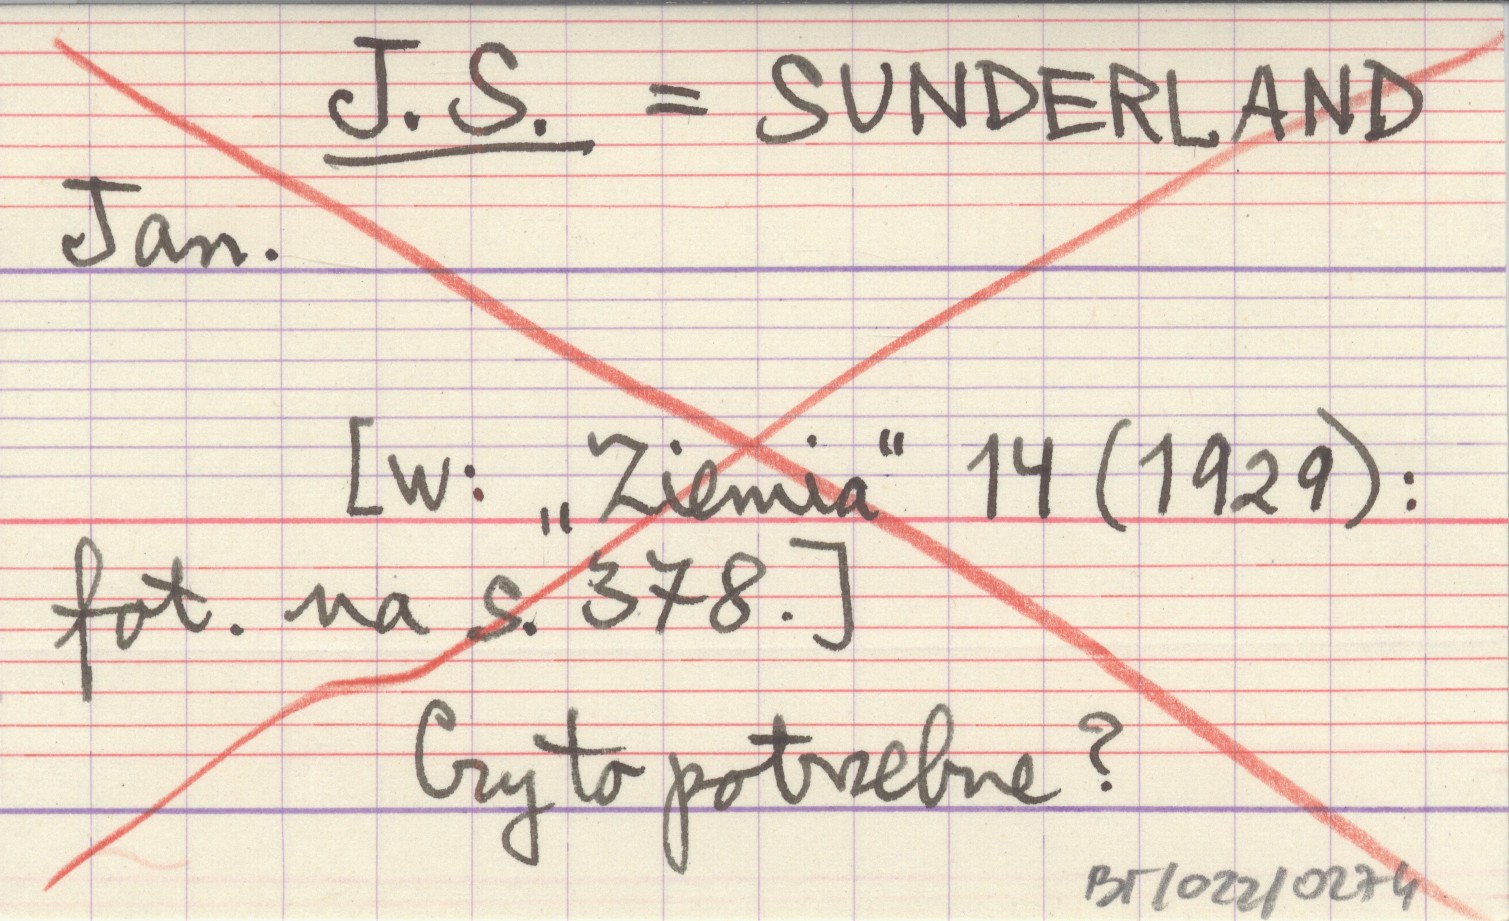 J.S. = SUNDERLAND
Jan.
[w: „Ziemia" 14 (1929):
fot. na s. 378.]
Czy to potrzebne?
BT/022/0274